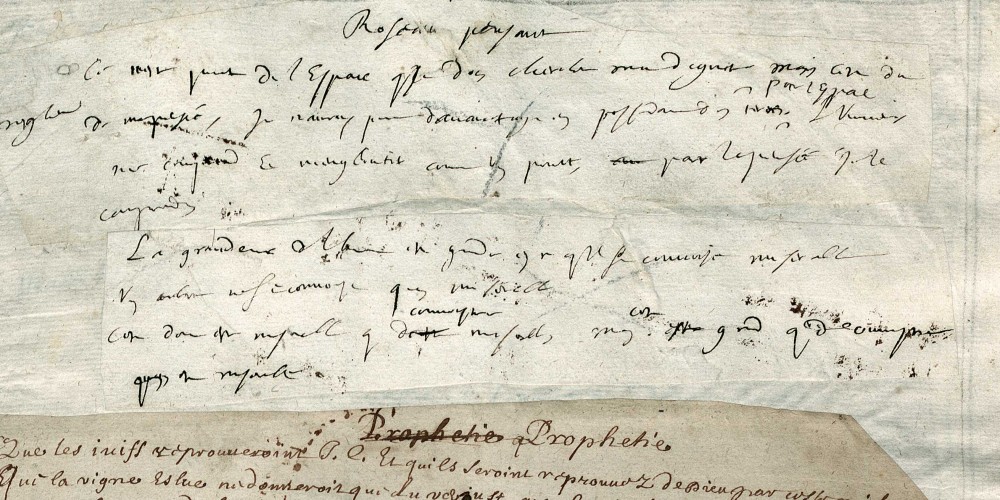 Roseau pensant
Ce nest point de l'Espace que je dois chercher ma dignité mais cest du
par l'Espace
reglem de ma pensée, Je n'auray point d'avantage en possedant des terres. l'Univers
me comprend et m'engloutit comme un point, par la pensée je le
comprends
La grandeur de l'home est grande en ce qu'il se connoist miserable
Un arbre ne se connoist pas miserable
connoistre
Cest donc estre miserable que de miserable mais cest grand que de connoistre
quon est miserable
Prophetie Prophetie
Que les iuifs reprouveroint J. C. Et quils seroint reprouvez de Dieu par cette
Que la vigne Eslue ne donneroit que du verjust